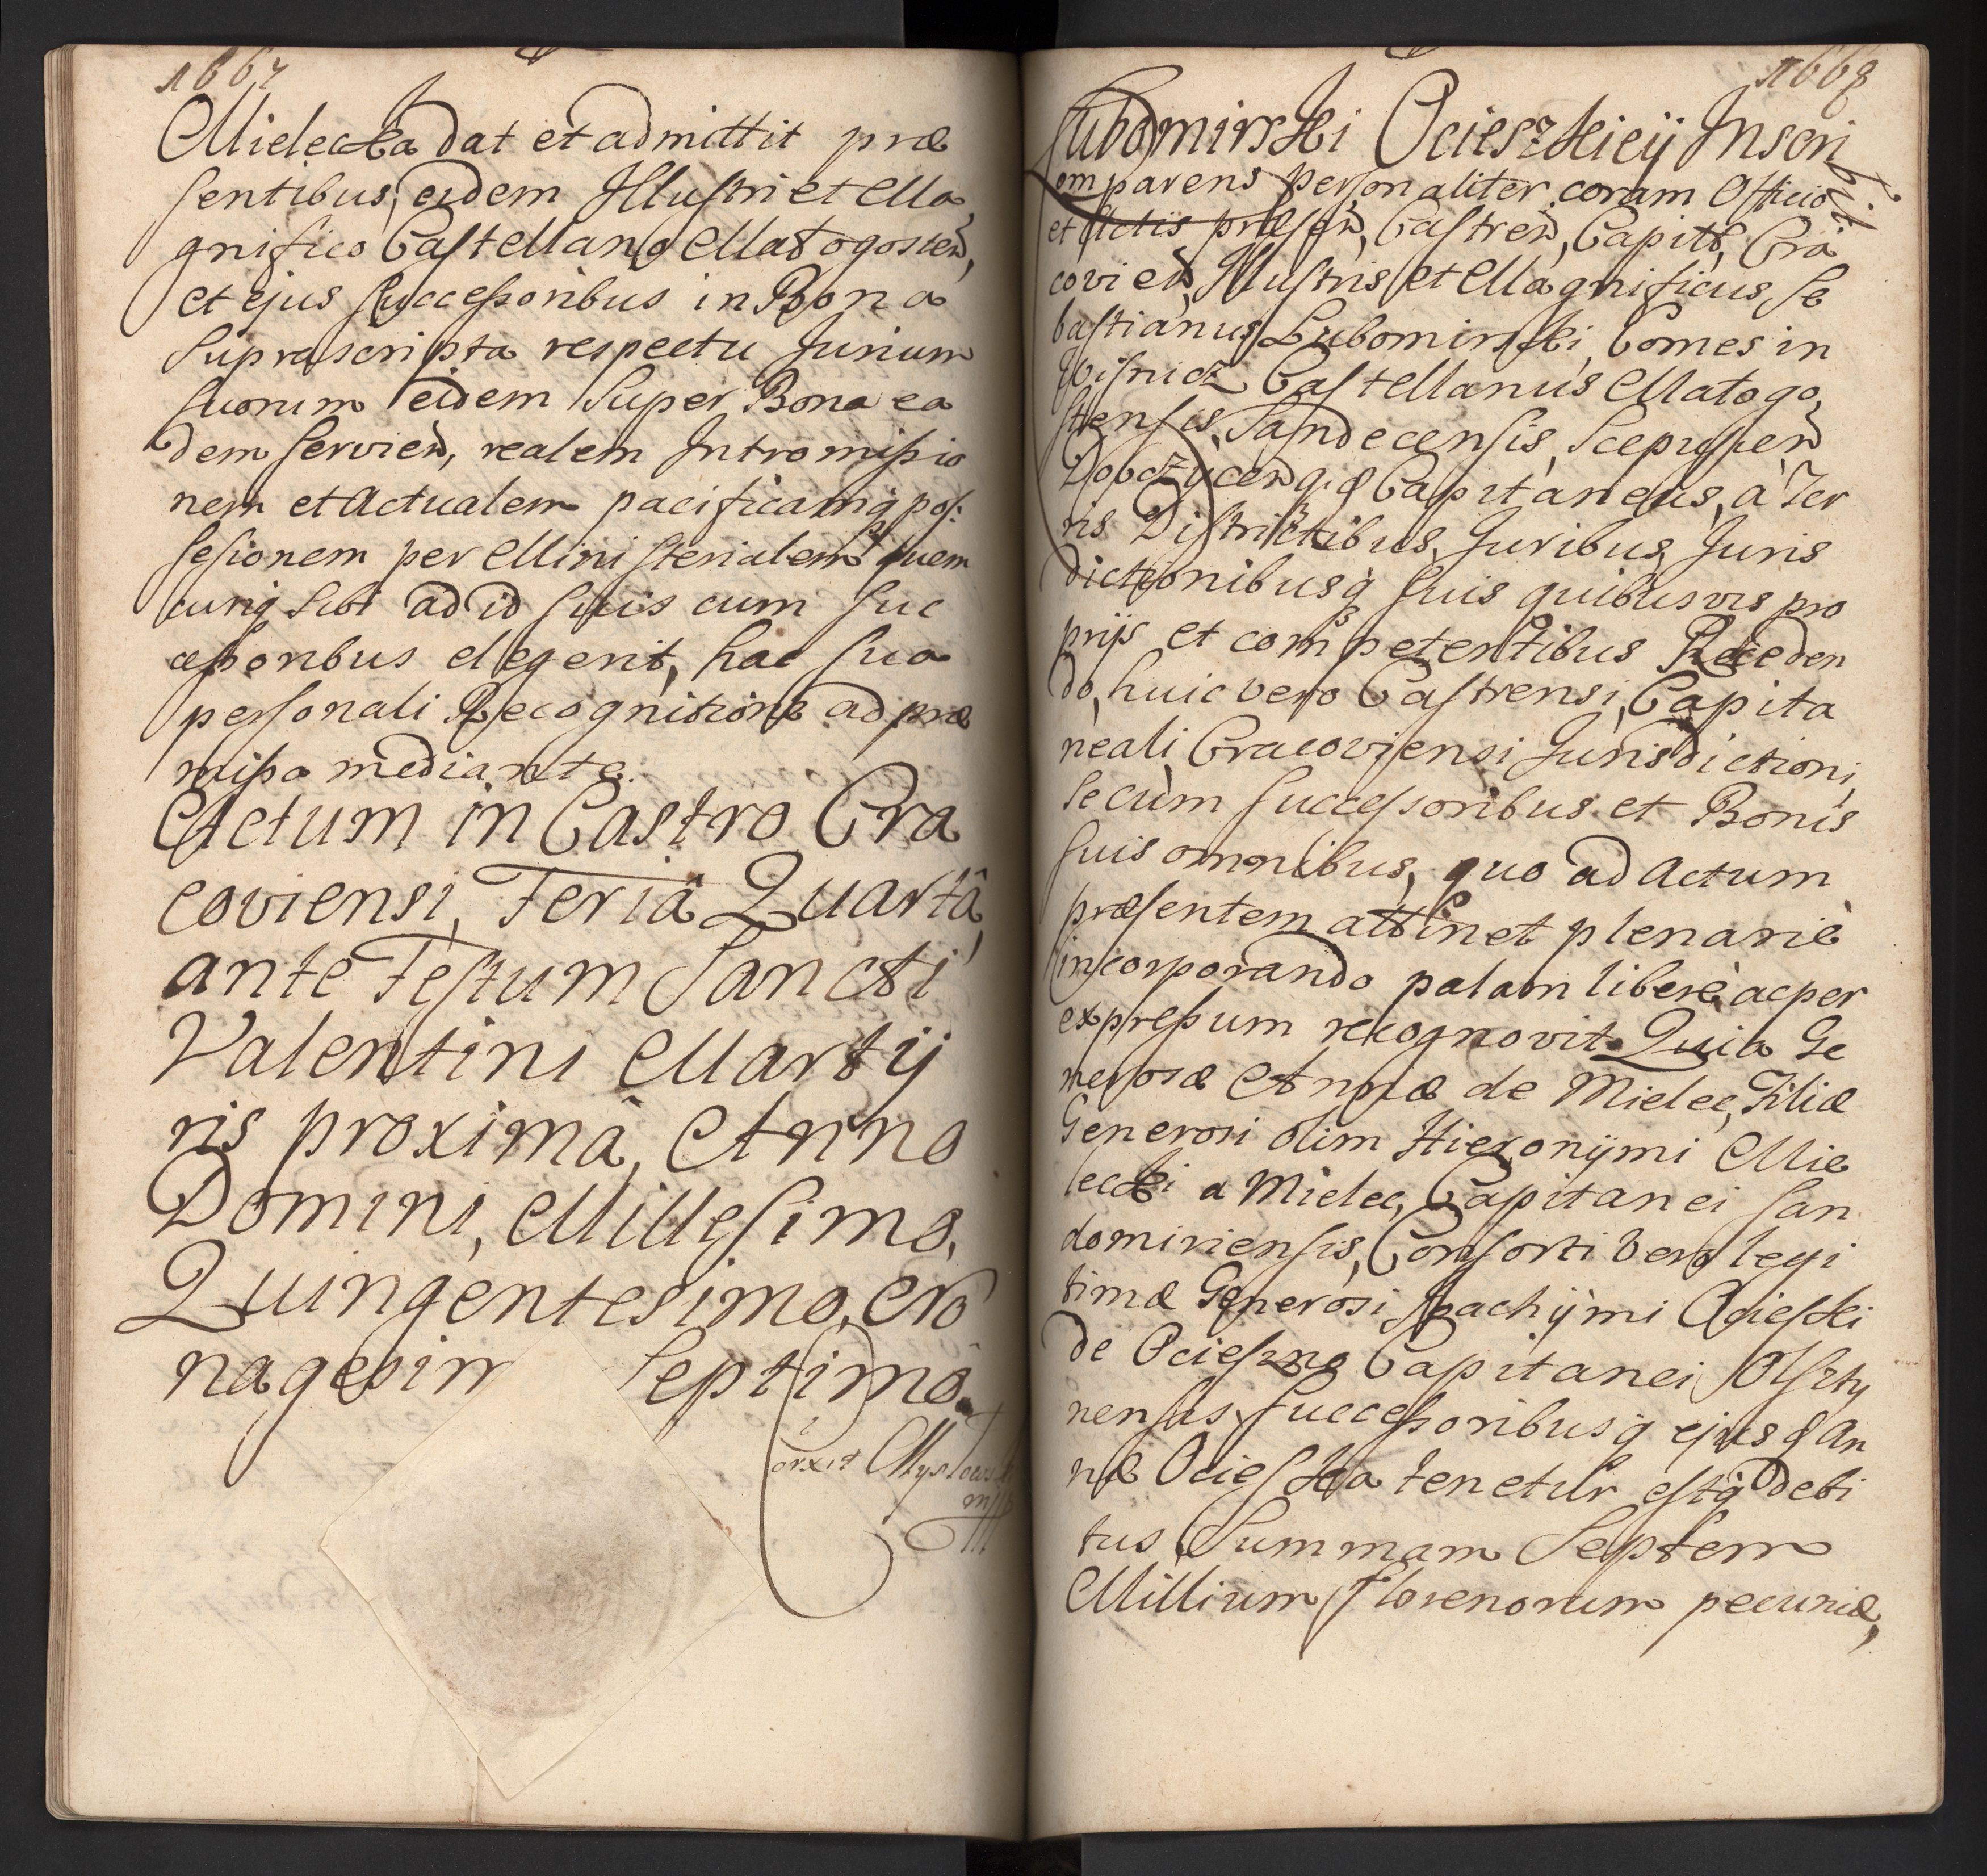 1667
Mielecka dat et admittit præ
sentibus, eidem Illustri et Ma,
gnifico Castellano Małogosień,
et ejus Successoribus in Bona
Suprascripta respectu Jurium
Suorum eidem Super Bona ea
dem servień, realem Intromissio
nem et Actualem pacificamq̢ pos:
sesionem per Ministerialem quem
cunq̢ sibi ad id suis cum suc
cessoribus elegerit, hac sua
personali Recognitione ad præ
missa mediante.
Actum in Castro Cra
coviensi, Feriâ Quartâ
ante Festum Sancti
Valentini Marty
ris proximâ, Anno
Domini, Millesimo,
Quingentesimo, No
nagesim Septimo.
1668
Lubomirski Ocieszkiey Inscribit
omparens personaliter coram Officio
et Actis præseń, Castreń, Capitł, Cra
covień, Illustris et Magnificus Se
bastianus Lubomirski Comes in
Wisnicz Castellanus Małogo,
stensis, Sandecensis, Scepusień
Dobczyceń q̢ Capitaneus, à Ter
ris Districtibus, Juribus, Juris
dictionibusq̢ suis quibusvis pro
prijs et competentibus Receden
do, huic vero Castrensi, Capita
neali Cracoviensi Jurisdictioni,
se cum successoribus et Bonis
suis omnibus, quo ad Actum
præsentem attinet plenariè
incorporando palam liberè ac per
expressum recognovit. Quia Ge
nerosæ Annæ de Mielec, Filiæ
Generosi olim Hieronymi Mie
lecki a Mielec, Capitanei San
domiriensis, Consorti vero legi
timæ Generosi Joachymi Ocieski
de Ocieszno Capitanei Olszty
nensis, successoribusq̢ ejusd An
næ Ocieska tenetur estq̢ debi
tus Summam Septem
Millium Florenorum pecuniæ,